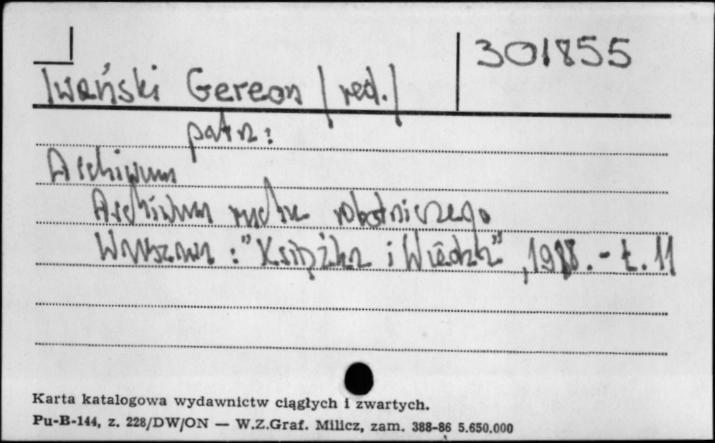 301855
Iwański Gereon /red./
patrz:
Archiwum
Archiwum ruchu robotniczego
Warszawa : "Książka i Wiedza", 19 .- t. 11
Karta katalogowa wydawnictw ciągłych i zwartych.
Pu-B-144, z. 228/DW/ON — W.Z.Graf. Milicz, zam. 388-86 5.650.000